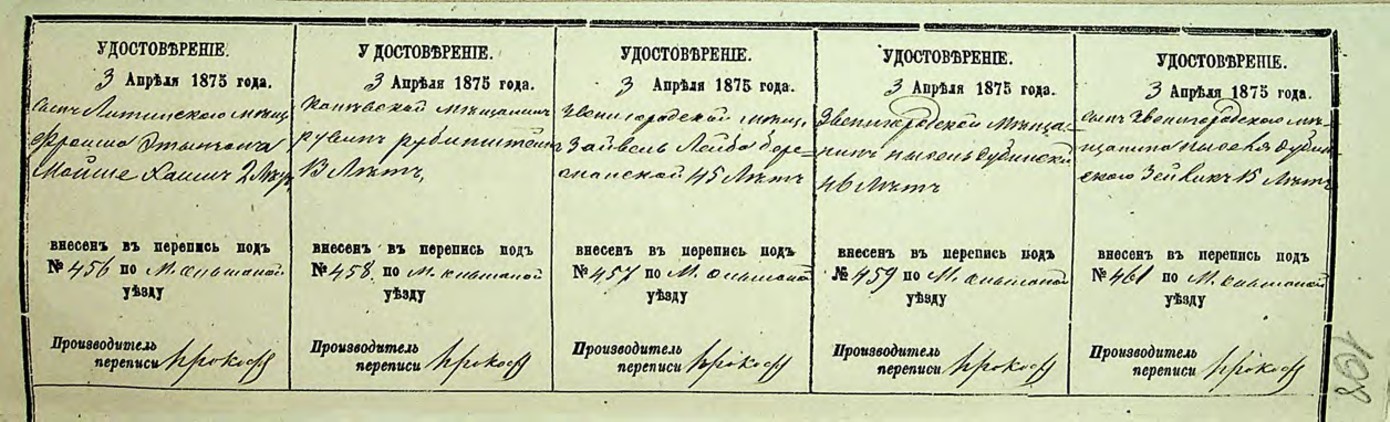 УДОСТОВѢРЕНІЕ.
3 Апрѣля 1875 года.
сынъ Литинскаго мѣщ.
Мойше Хаимъ 2 лѣт.
внесенъ въ перепись подъ
№ 456 по М. Ольшаной
уѣзду
Производитель
переписи
УДОСТОВѢРЕНІЕ.
3 Апрѣля 1875 года.
мѣщанинъ
Рувинъ Рубинштейнъ
13 Лѣтъ,
внесенъ въ перепись подъ
№ 458 по М. Ольшаной
уѣзду
Производитель
переписи
УДОСТОВѢРЕНІЕ.
3 Апрѣля 1875 года.
Звенигородской мѣщ.
Зайвель Лейба
45 Лѣтъ
внесенъ въ перепись подъ
№ 457 по М. Ольшаной
уѣзду
Производитель
переписи
УДОСТОВѢРЕНІЕ.
3 Апрѣля 1875 года.
Звенигородской Мѣща-
нинъ Дубинскій
46 Лѣтъ
внесенъ въ перепись подъ
№ 459 по М. Ольшаной
уѣзду
Производитель
переписи
УДОСТОВѢРЕНІЕ.
3 Апрѣля 1875 года.
сынъ Звенигородскаго мѣ-
щанина Дубин
скаго 15 Лѣтъ
внесенъ въ перепись подъ
№ 461 по М. Ольшаной
уѣзду
Производитель
переписи
198